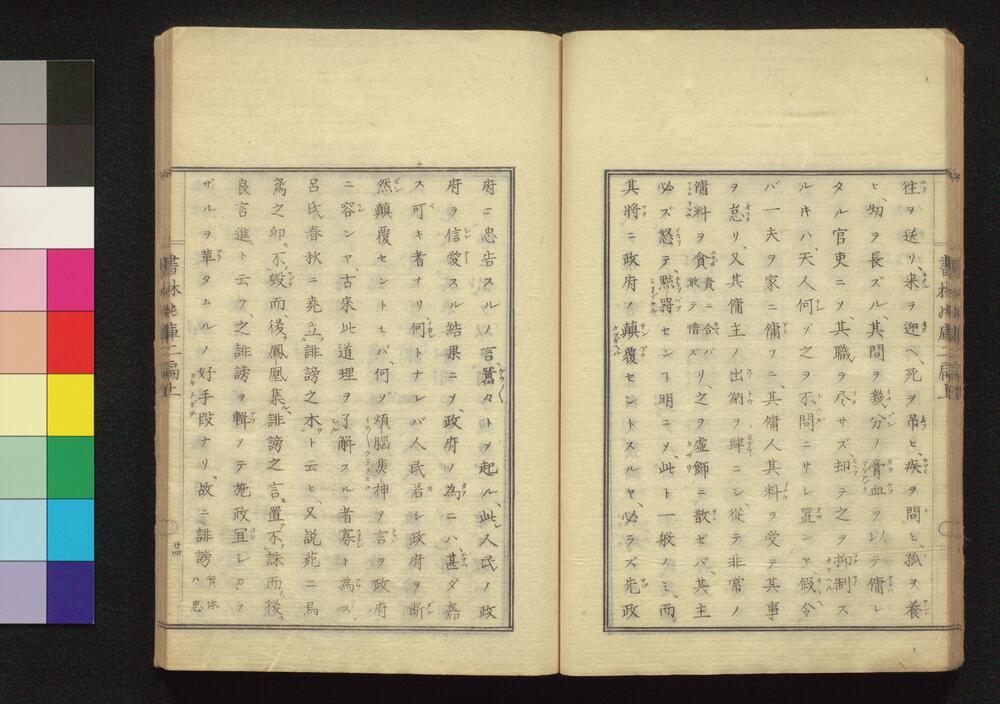 往ヲ送リ、来ヲ迎ヘ、死ヲ吊ヒ、疾ヲ問ヒ、孤ヲ養
ヒ、幼ヲ長ズル、其間ヲ幾分ノ膏血ヲ以テ傭レ
タル官吏ニノ、其職ヲ尽サズ、却テ之ヲ抑制ス
ルキハ、天人何ゾ之ヲ不問ニサレ置ンヤ、假令
バ一夫ヲ家ニ傭フニ、其傭人其料ヲ受テ其事
ヲ怠リ、又其傭主ノ出納ヲ肆ニシ、従テ非常ノ
傭料ヲ貪リ、之ヲ虚飾ニ散ゼバ、其主
必ズ怒テ、黙詈センヿ明ニノ、此ト一般ノミ、而
其將ニ政府ノ顛覆セントスルヤ、必ラズ先政
府ニ忠告スルノ言、囂々トヲ起ル、此人民ノ政
府ヲ信愛スル結果ニノ、政府ノ為ニハ甚ダ嘉
ス可キ者ナリ何トナレバ人民若シ政府ヲ断
然顛覆セントセバ、何ゾ煩脳焦神ヲ言ヲ政府
ニ容ンヤ、古來此道理ヲ了解スル者寡ト為ス、
呂氏春秋ニ堯立誹謗之木ト云ヒ、又説苑ニ烏
鳶之卵不毀而、後鳳凰集、誹謗之言置不誅而後
良言進ト云フ、之誹謗ヲ輯メテ施政冝レカラ
ザルヲ革タムルノ好手段ナリ、故ニ誹謗ハ忠
書林
庫二編上
廿四